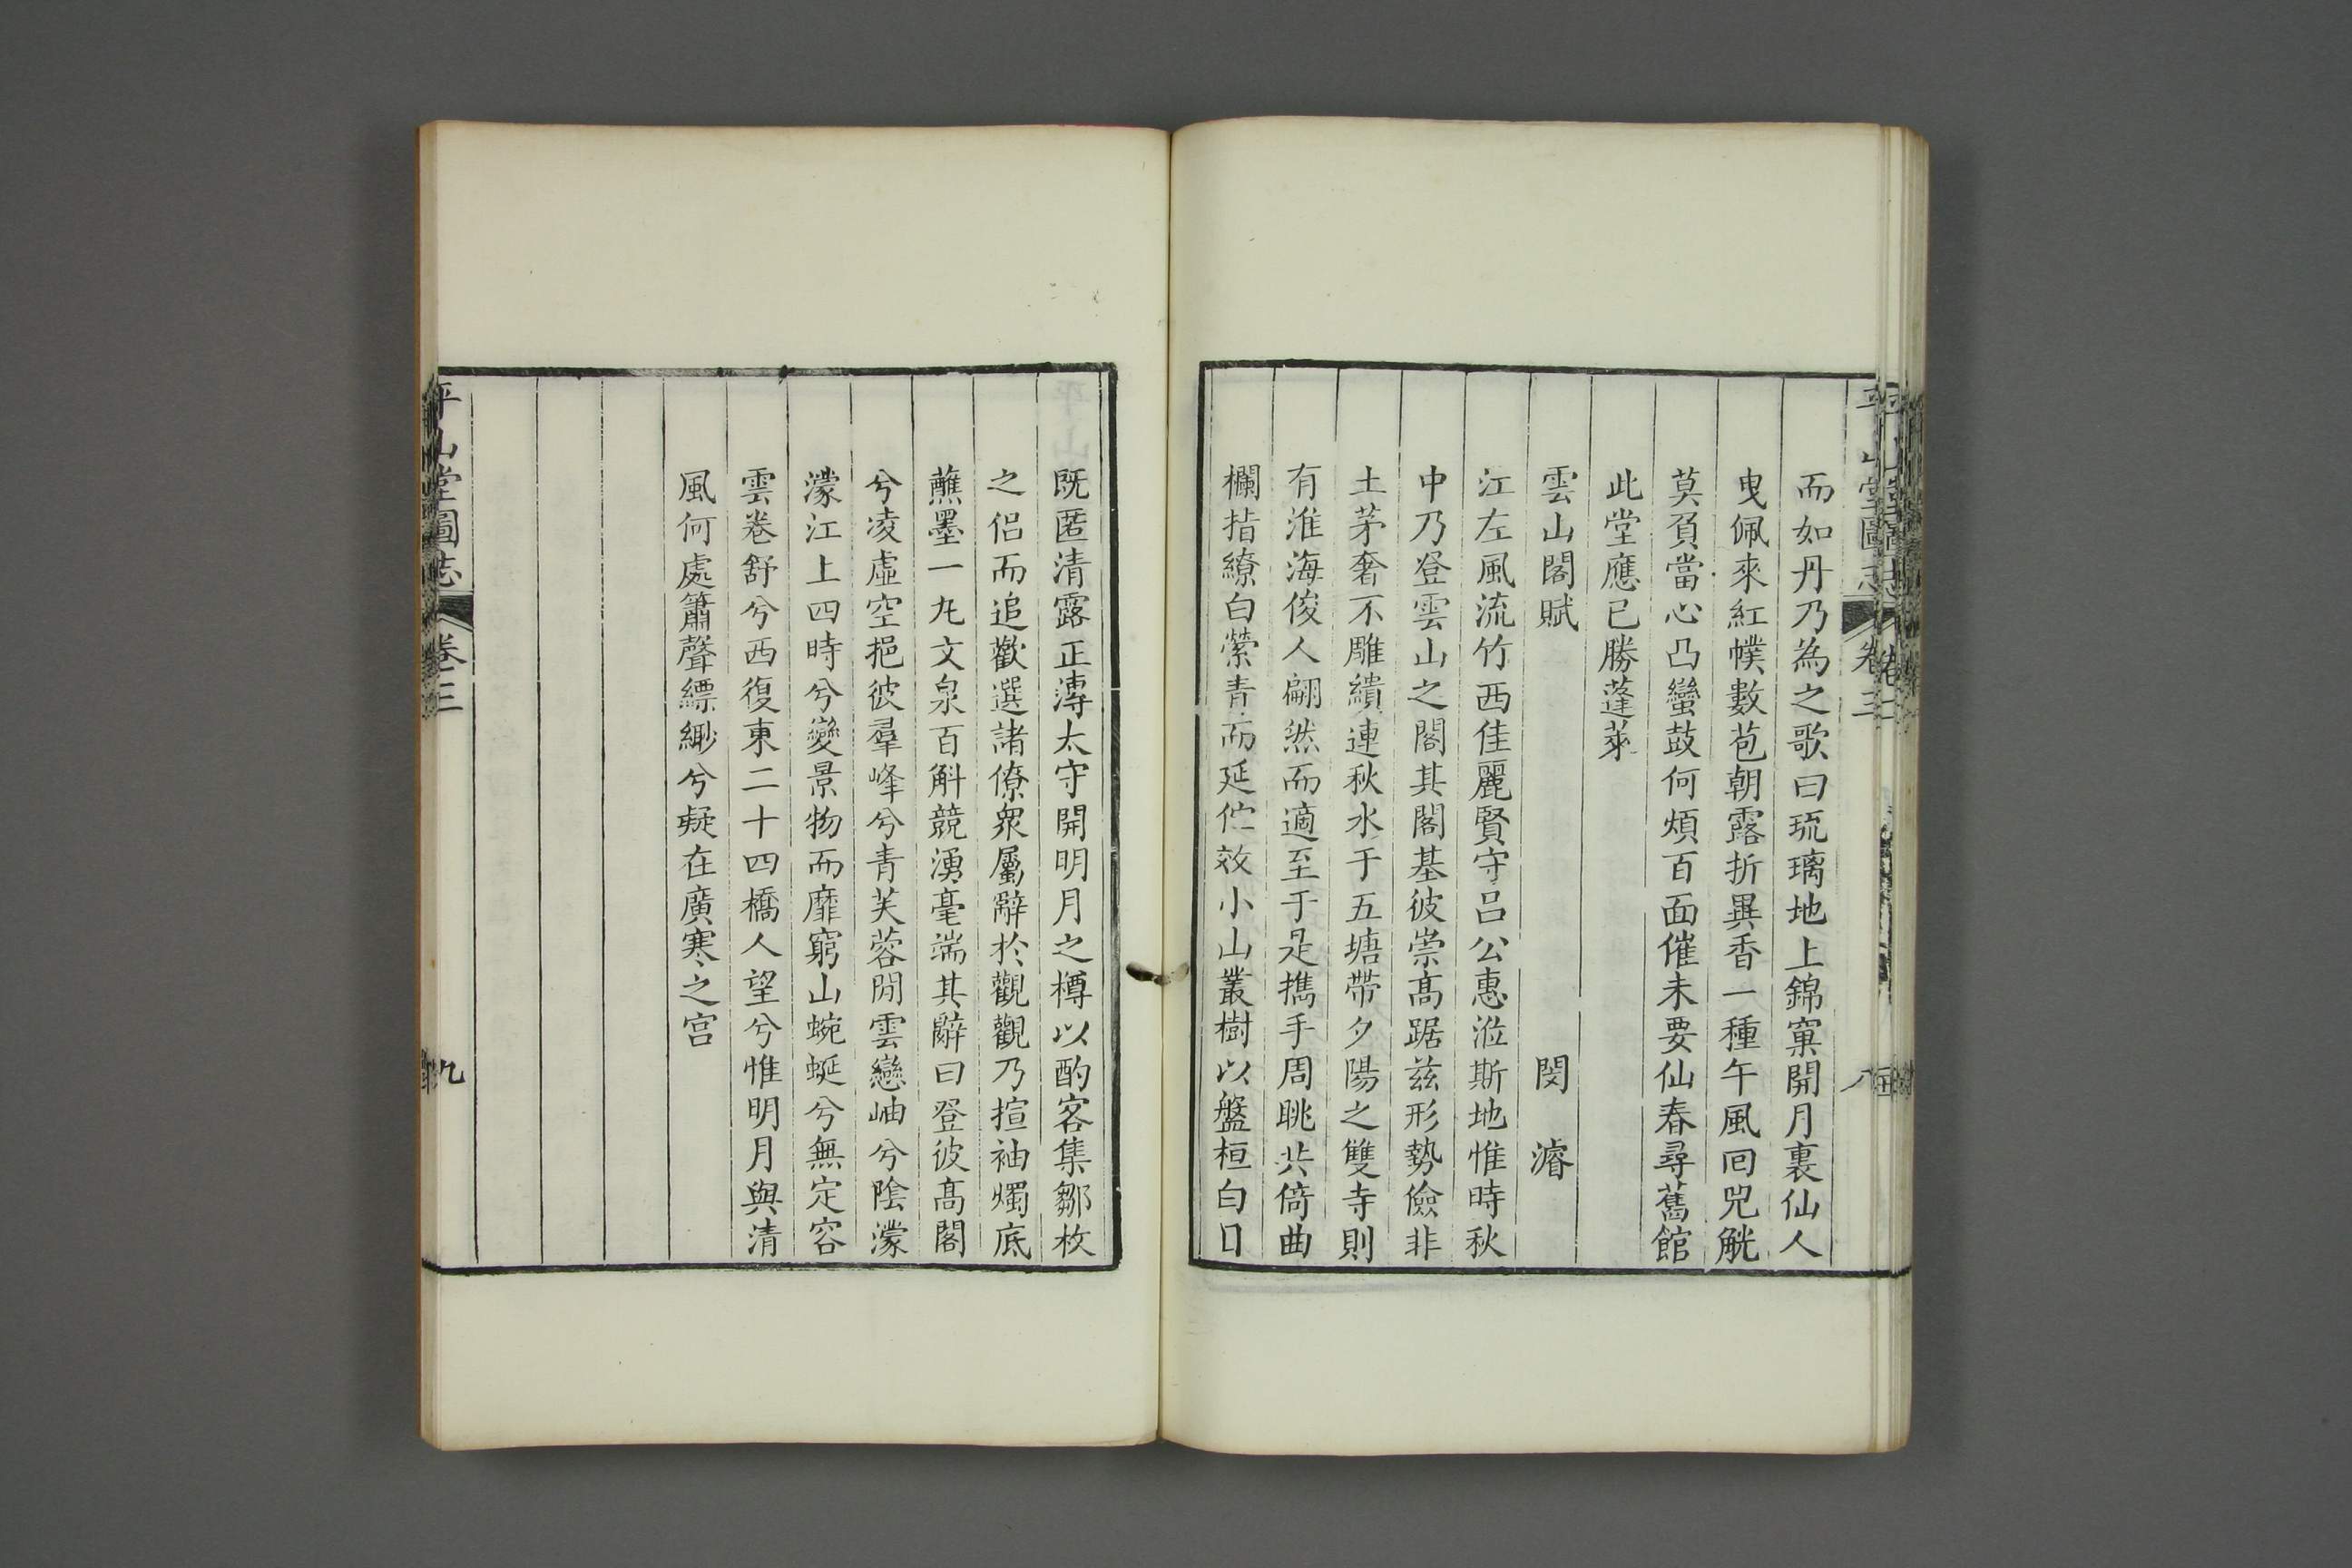 而如丹乃為之歌曰琉璃地上錦窠開月裏仙人
曳佩來紅幞數苞朝露折異香一種午風回兕觥
莫負當心凸蠻鼓何煩百面催未要仙春尋舊館
此堂應已勝蓬萊
雲山閣賦 閔濬
江左風流竹西佳麗賢守呂公惠涖斯地惟時秋
中乃登雲山之閣其閣基彼崇高踞茲形勢儉非
土茅奢不雕繢連秋水于五塘帶夕陽之雙寺則
有淮海俊人翩然而適至于是攜手周眺共倚曲
欄指繚白縈青而延佇效小山叢樹以盤桓白日
既匿清露正漙太守開明月之樽以酌客集鄒枚
之侶而追歡選諸僚衆屬辭於觀觀乃揎袖燭底
蘸墨一丸文泉百斛競湧毫端其辭曰登彼高閣
兮凌虛空挹彼羣峰兮青芙蓉閒雲戀岫兮陰濛
濛江上四時兮變景物而靡窮山蜿蜒兮無定容
雲卷舒兮西復東二十四橋人望兮惟明月與清
風何處簫聲縹緲兮疑在廣寒之宮
平山堂圖志 卷三 九